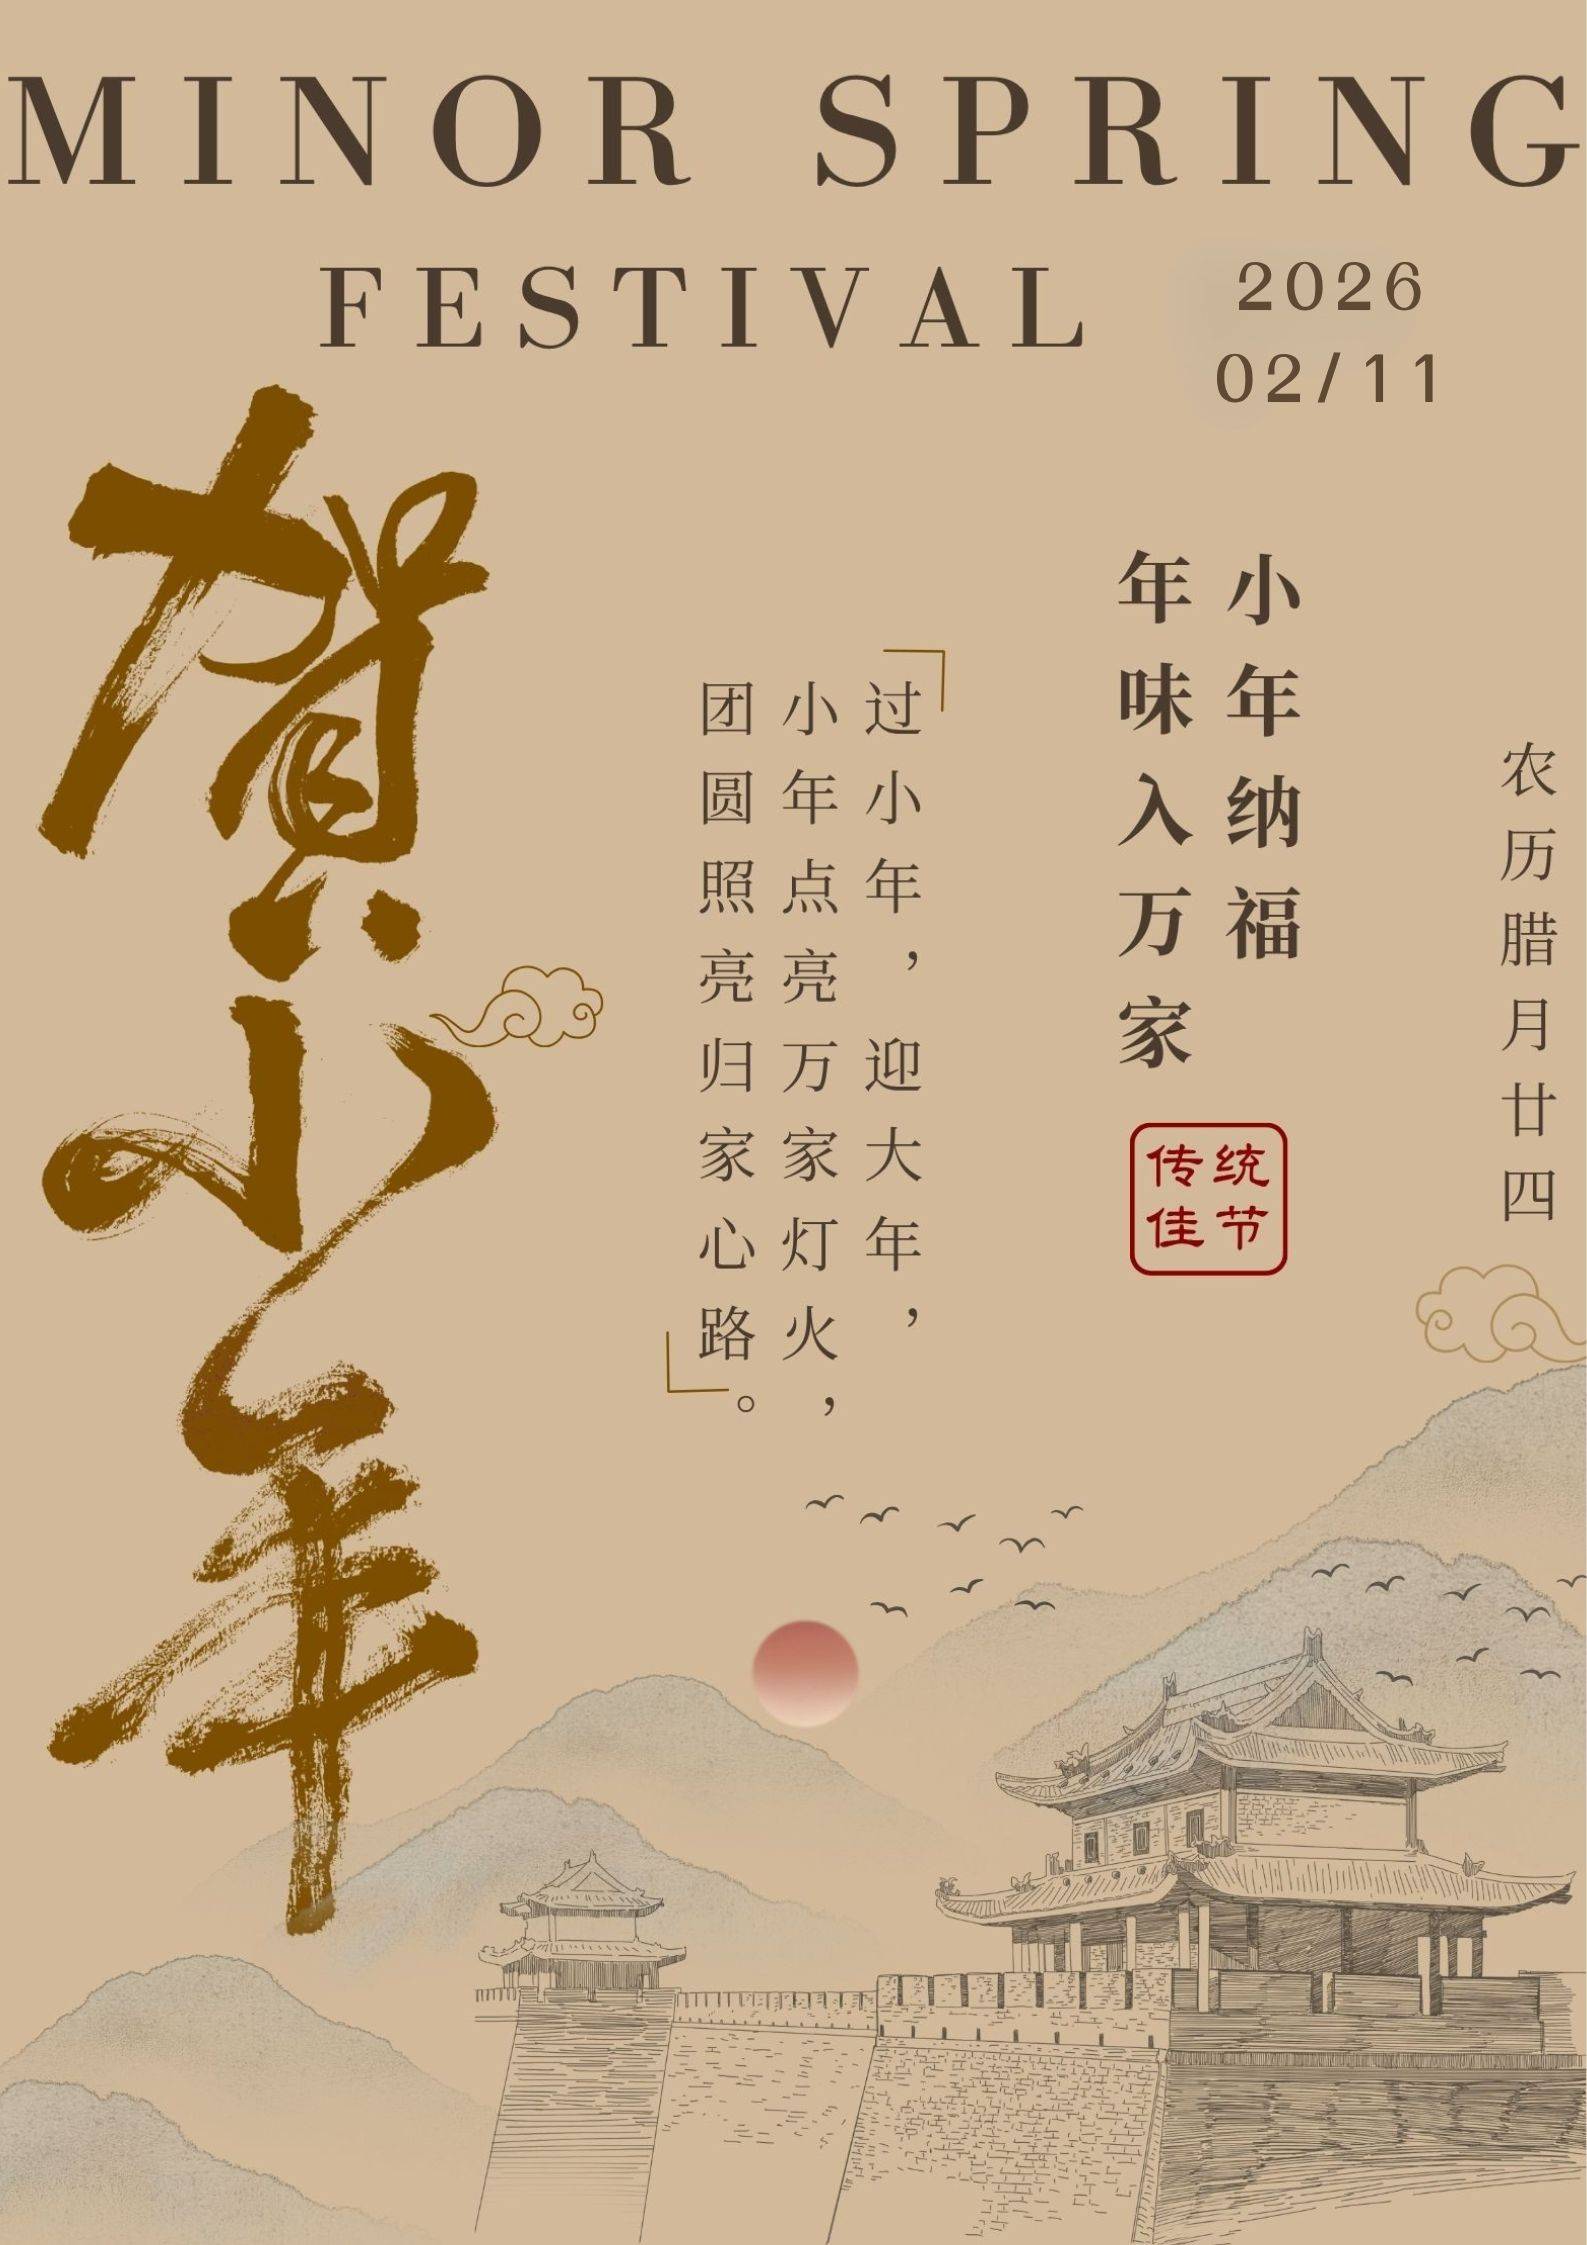 MINOR SPRING
FESTIVAL
2026
02/11
贺小年
小年纳福
年味入万家
传统
佳节
过小年，迎大年，
小年点亮万家灯火，
团圆照亮归家心路。
农历腊月廿四